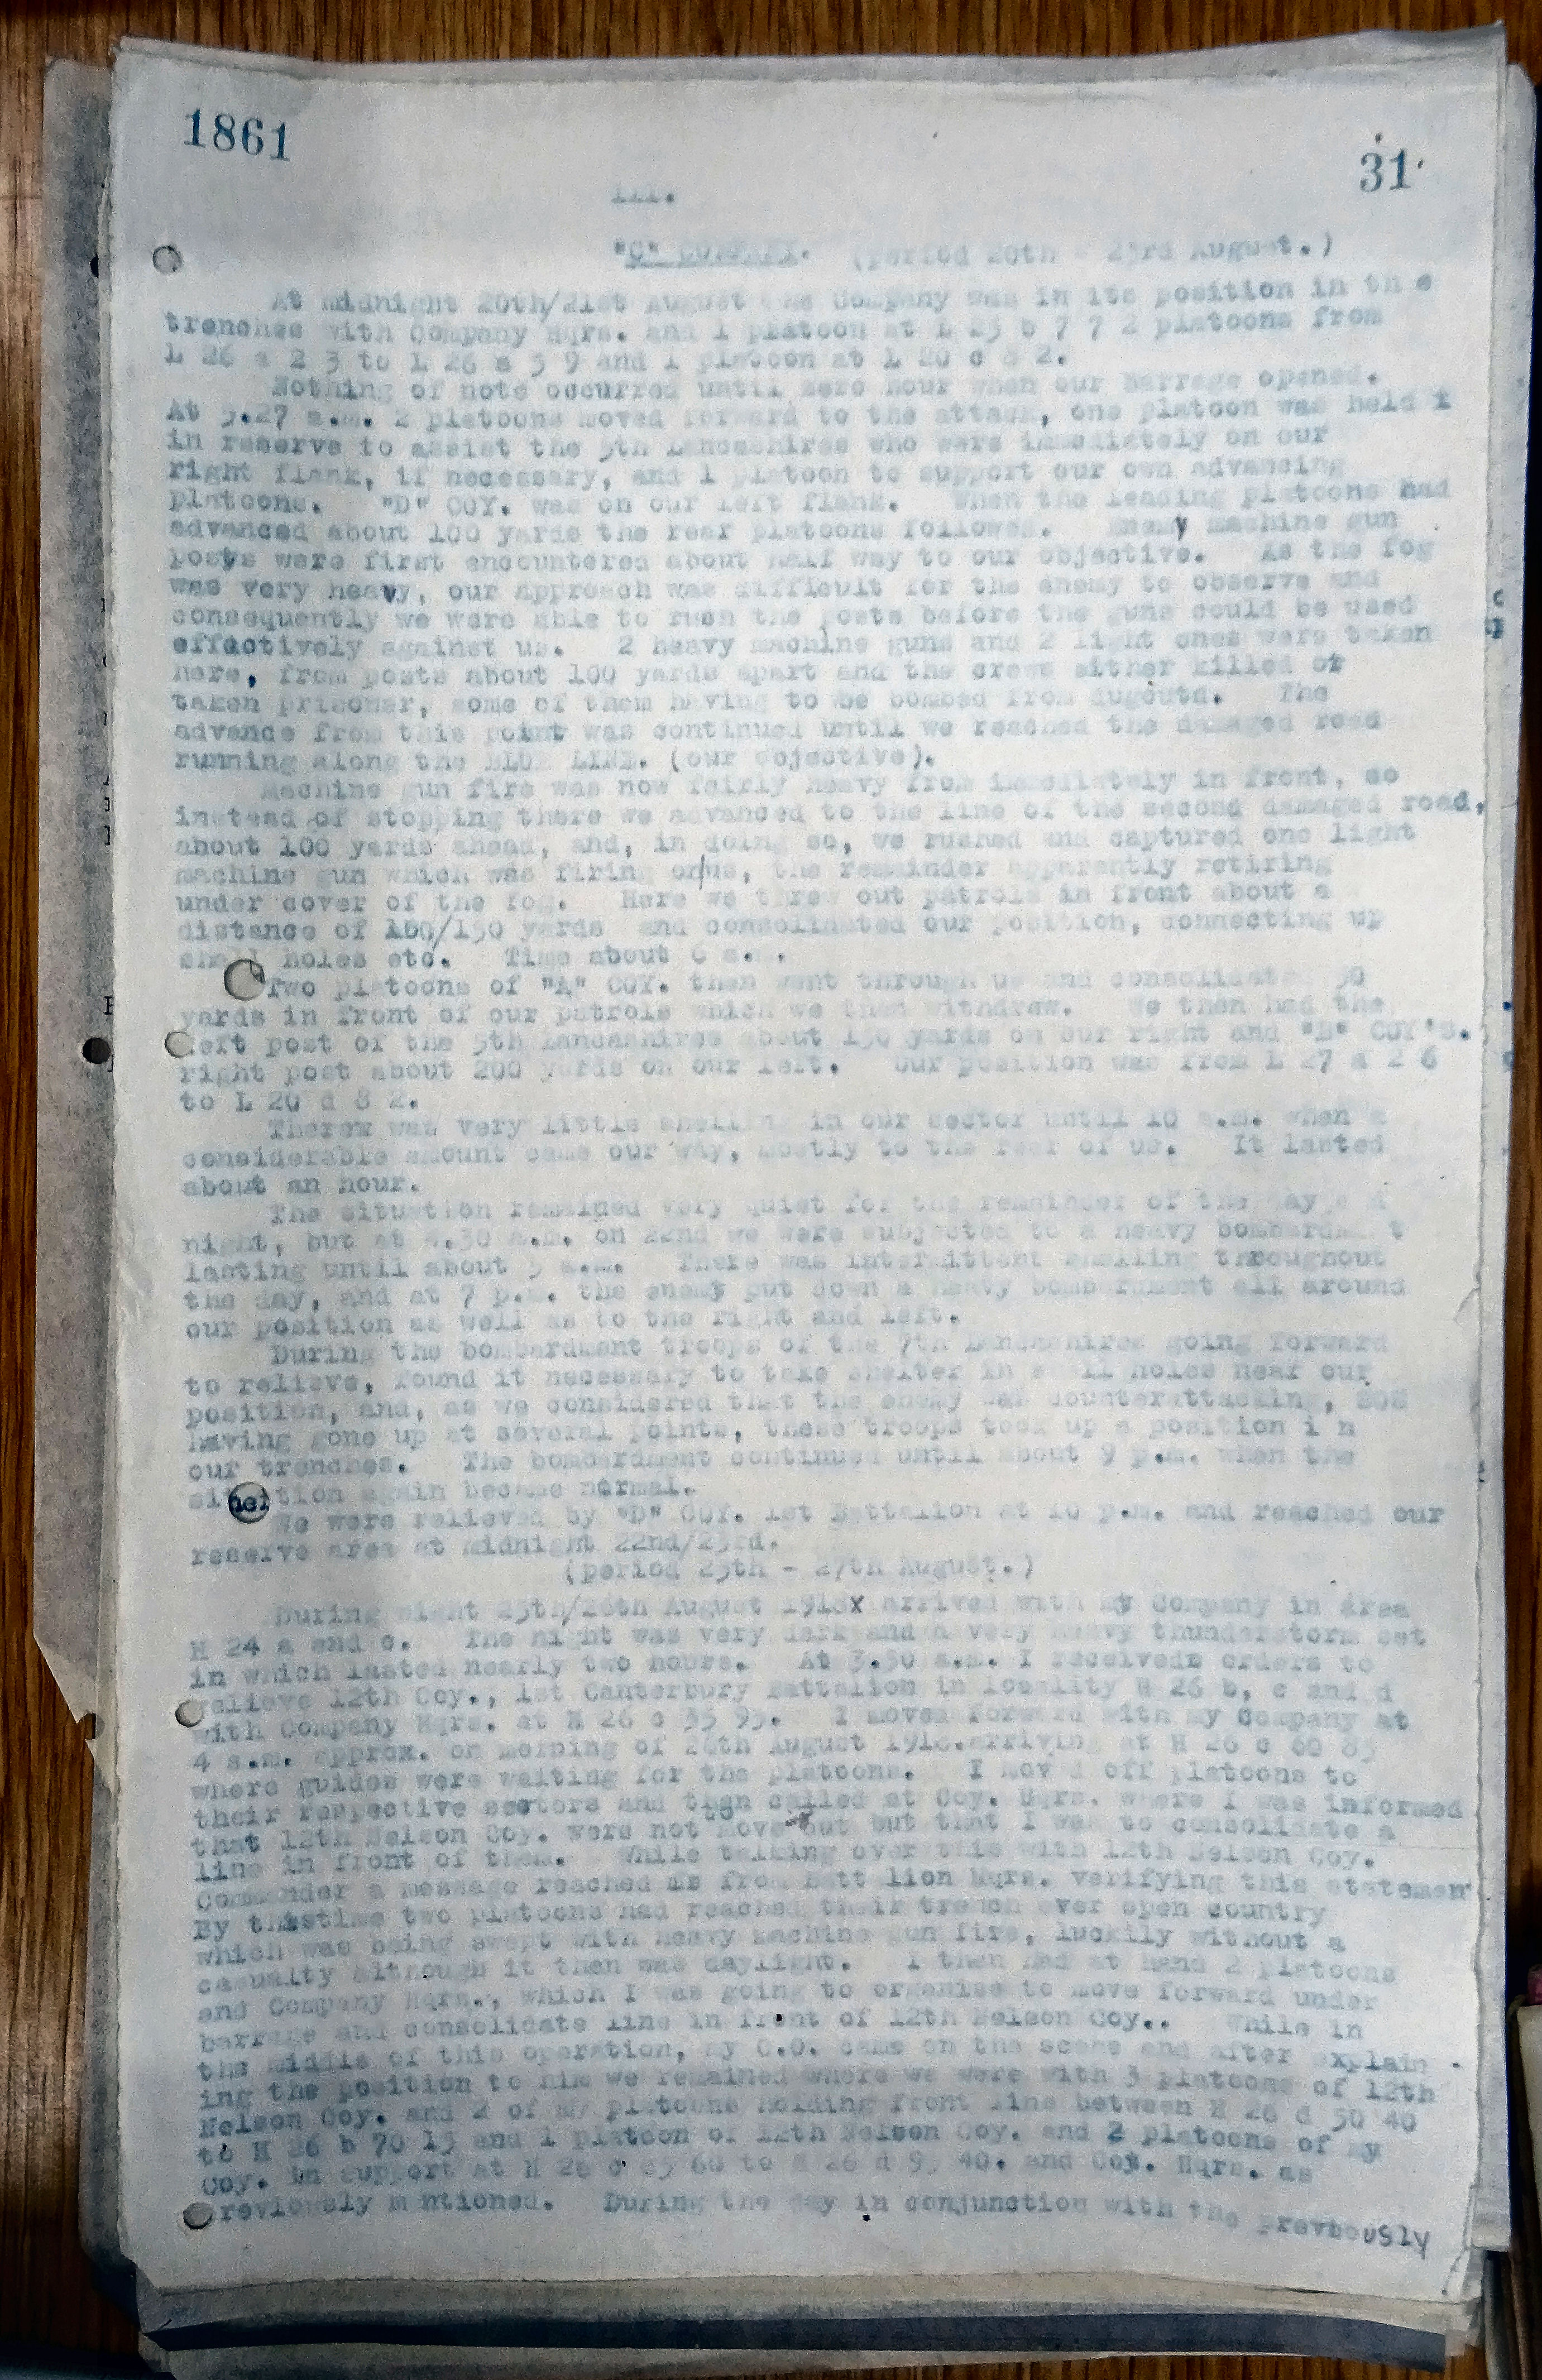 1861
31
III.
"C" COMPANY. (period 20th - 23rd August.)
At midnight 20th/21st August the Company was in its position in th e
trenches with Company Hqrs. and 1 platoon at L 25 b 7 7 2 platoons from
L 26 a 2 3 to L 26 a 5 9 and 1 platoon at L 20 c 8 2.
Nothing of note occurred until zero hour when our barrage opened.
At 5.27 a.m. 2 platoons moved forward to the attack, one platoon was held
in reserve to assist the 5th Lancashires who were immediately on our
right flank, if necessary, and 1 platoon to support our own advancing
platoons. "D" COY. was on our left flank. When the leading platoons had
advanced about 100 yards the rear platoons followed. Enemy machine gun
posts were first encountered about half way to our objective. As the fog
was very heavy, our approach was difficult for the enemy to observe and
consequently we were able to rush the posts before the guns could be used
effectively against us. 2 heavy machine guns and 2 light ones were taken
here, from posts about 100 yards apart and the crews either killed or
taken prisoner, some of them having to be bombed from dugouts. The
advance from this point was continued until we reached the damaged road
running along the BLUE LINE. (our objective).
Machine gun fire was now fairly heavy from immediately in front, so
instead of stopping there we advanced to the line of the second damaged road,
about 100 yards ahead, and, in doing so, we rushed and captured one light
machine gun which was firing on/us, the remainder apparently retiring
under cover of the fog. Here we threw out patrols in front about a
distance of 100/150 yards and consolidated our position, connecting up
shell holes etc. Time about 6 a.m.
Two platoons of "A" COY. then went through us and consolidated 50
yards in front of our patrols which we then withdrew. We then had the
left post of the 5th Lancashires about 150 yards on our right and COY'S.
right post about 200 yards on our left. Our position was from L 27 a 2 6
to L 20 d 8 2.
There was very little shelling in our sector until 10 a.m. when a
considerable amount came our way, mostly to the rear of us. It lasted
about an hour.
The situation remained very quiet for the remainder of the day and
night, but at 4.30 a.m. on 22nd we were subjected to a heavy bombardment
lasting until about 5 a.m. There was intermittent shelling throughout
the day, and at 7 p.m. the enemy put down a heavy bombardment all around
our position as well as to the right and left.
During the bombardment troops of the 7th Lancashires going forward
to relieve, found it necessary to take shelter in shell holes near our
position, and, as we considered that the enemy was counterattacking, SOS
having gone up at several points, these troops took up a position i n
our trenches. The bombardment continued until about 9 p.m. when the
situation again became normal.
We were relieved by "D" COY. 1st Battalion at 10 p.m. and reached our
reserve area at midnight 22nd/23rd.
(period 25th - 27th August.)
During night 25th/26th August 1918x arrived with my Company in area
H 24 a and c. The night was very dark and a very heavy thunderstorm set
in which lasted nearly two hours. At 3.30 a.m. I received orders to
relieve 12th Coy., 1st Canterbury Battalion in locality H 26 b, c and d
with Company Hqrs. at H 26 c 35 95. I moved forward with my Company at
4 a.m. approx. on morning of 26th August 1918. arriving at H 26 c 60 85
where guides were waiting for the platoons. I moved off platoons to
their respective sectors and then called at Coy. Hqrs. where I was informed
that 12th Nelson Coy. were not to move out but that I was to consolidate a
line in front of them. While talking over this with 12th Nelson Coy.
Commander a message reached me from Battalion Hqrs. verifying this statement
By thistime two platoons had reached their trench over open country
which was being swept with heavy machine gun fire, luckily without a
casualty although it then was daylight. I then had at hand 2 platoons
and Company Hqrs., which I was going to organise to move forward under
barrage and consolidate line in front of 12th Nelson Coy.. While in
the middle of this operation, my C.O. came on the scene and after explain -
ing the position to him we remained where we were with 3 platoons of 12th
Nelson Coy. and 2 of my platoons holding front line between H 26 d 50 40
to H 26 b 70 15 and 1 platoon of 12th Nelson Coy. and 2 platoons of my
Coy. in support at H 26 c 65 60 to H 26 d 9 40. and Coy. Hqrs. as
previously mentioned. During the day in conjunction with the previously